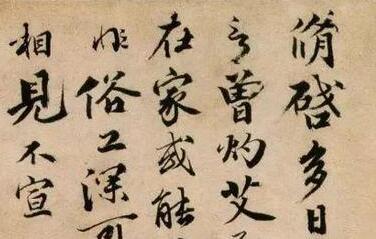 脩啓多日
言曾灼艾
在家或能
非俗工深可
相見不宣